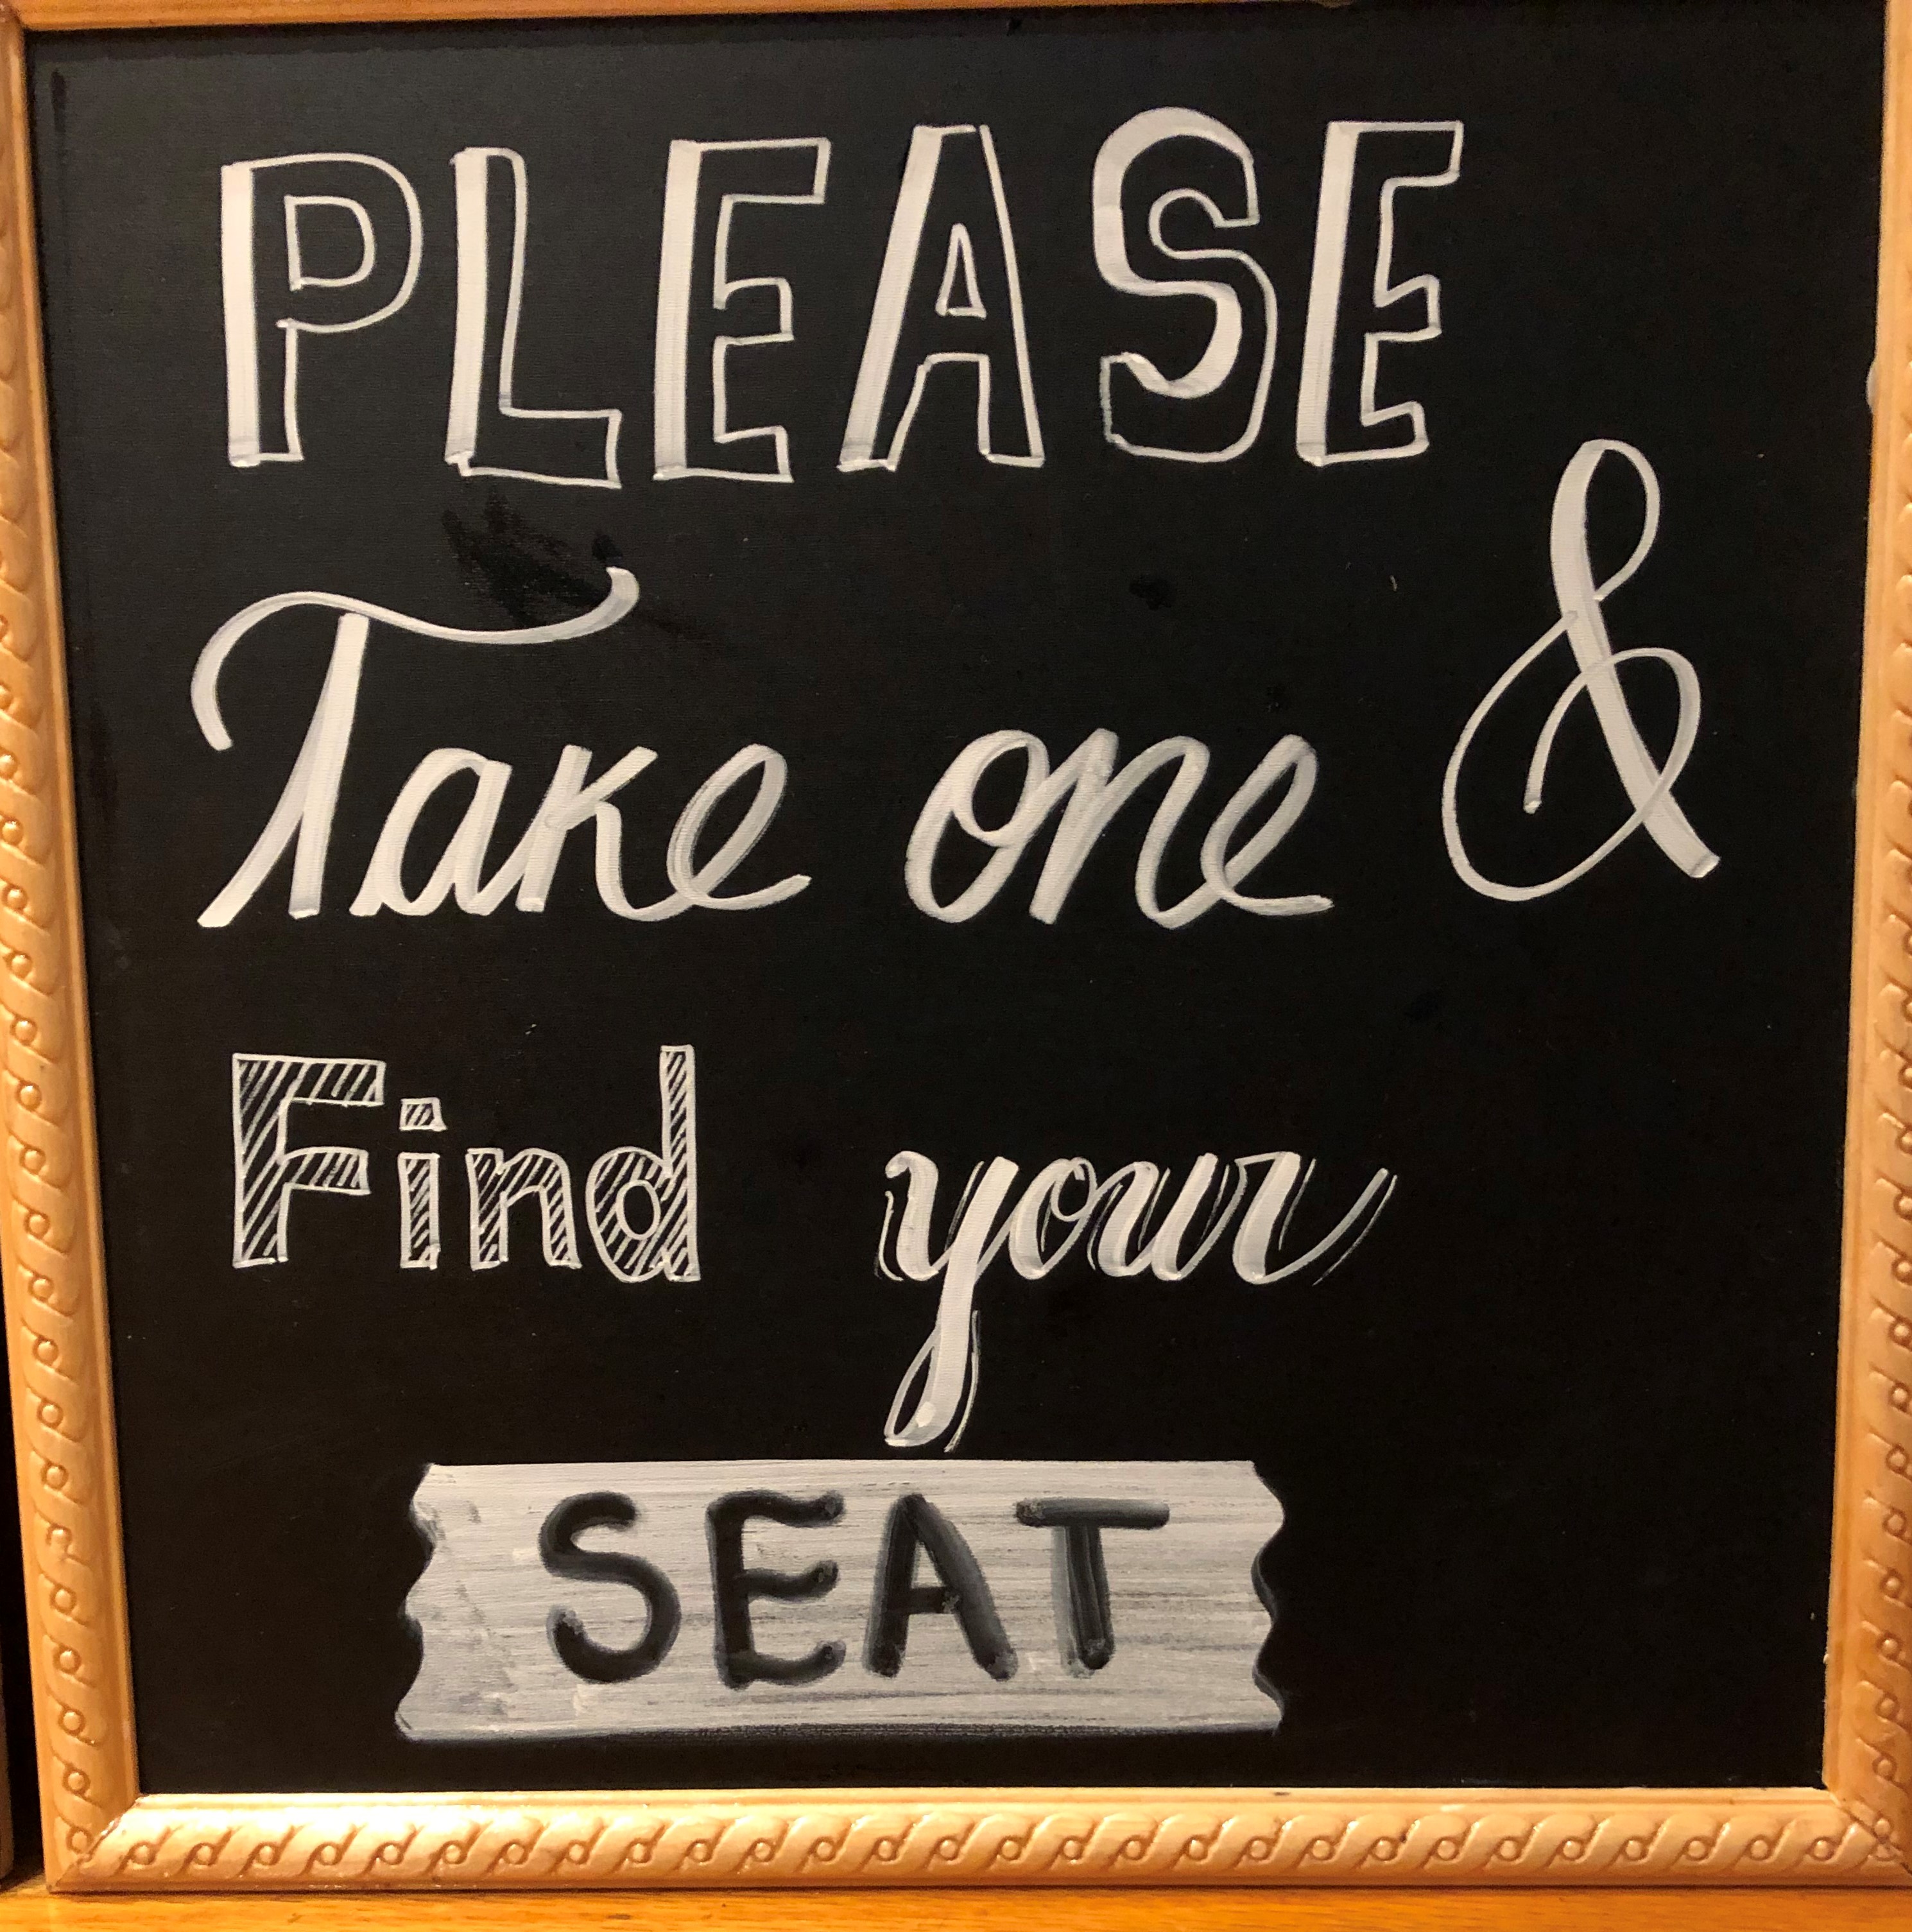 PLEASE
Take one &
Find your
SEAT